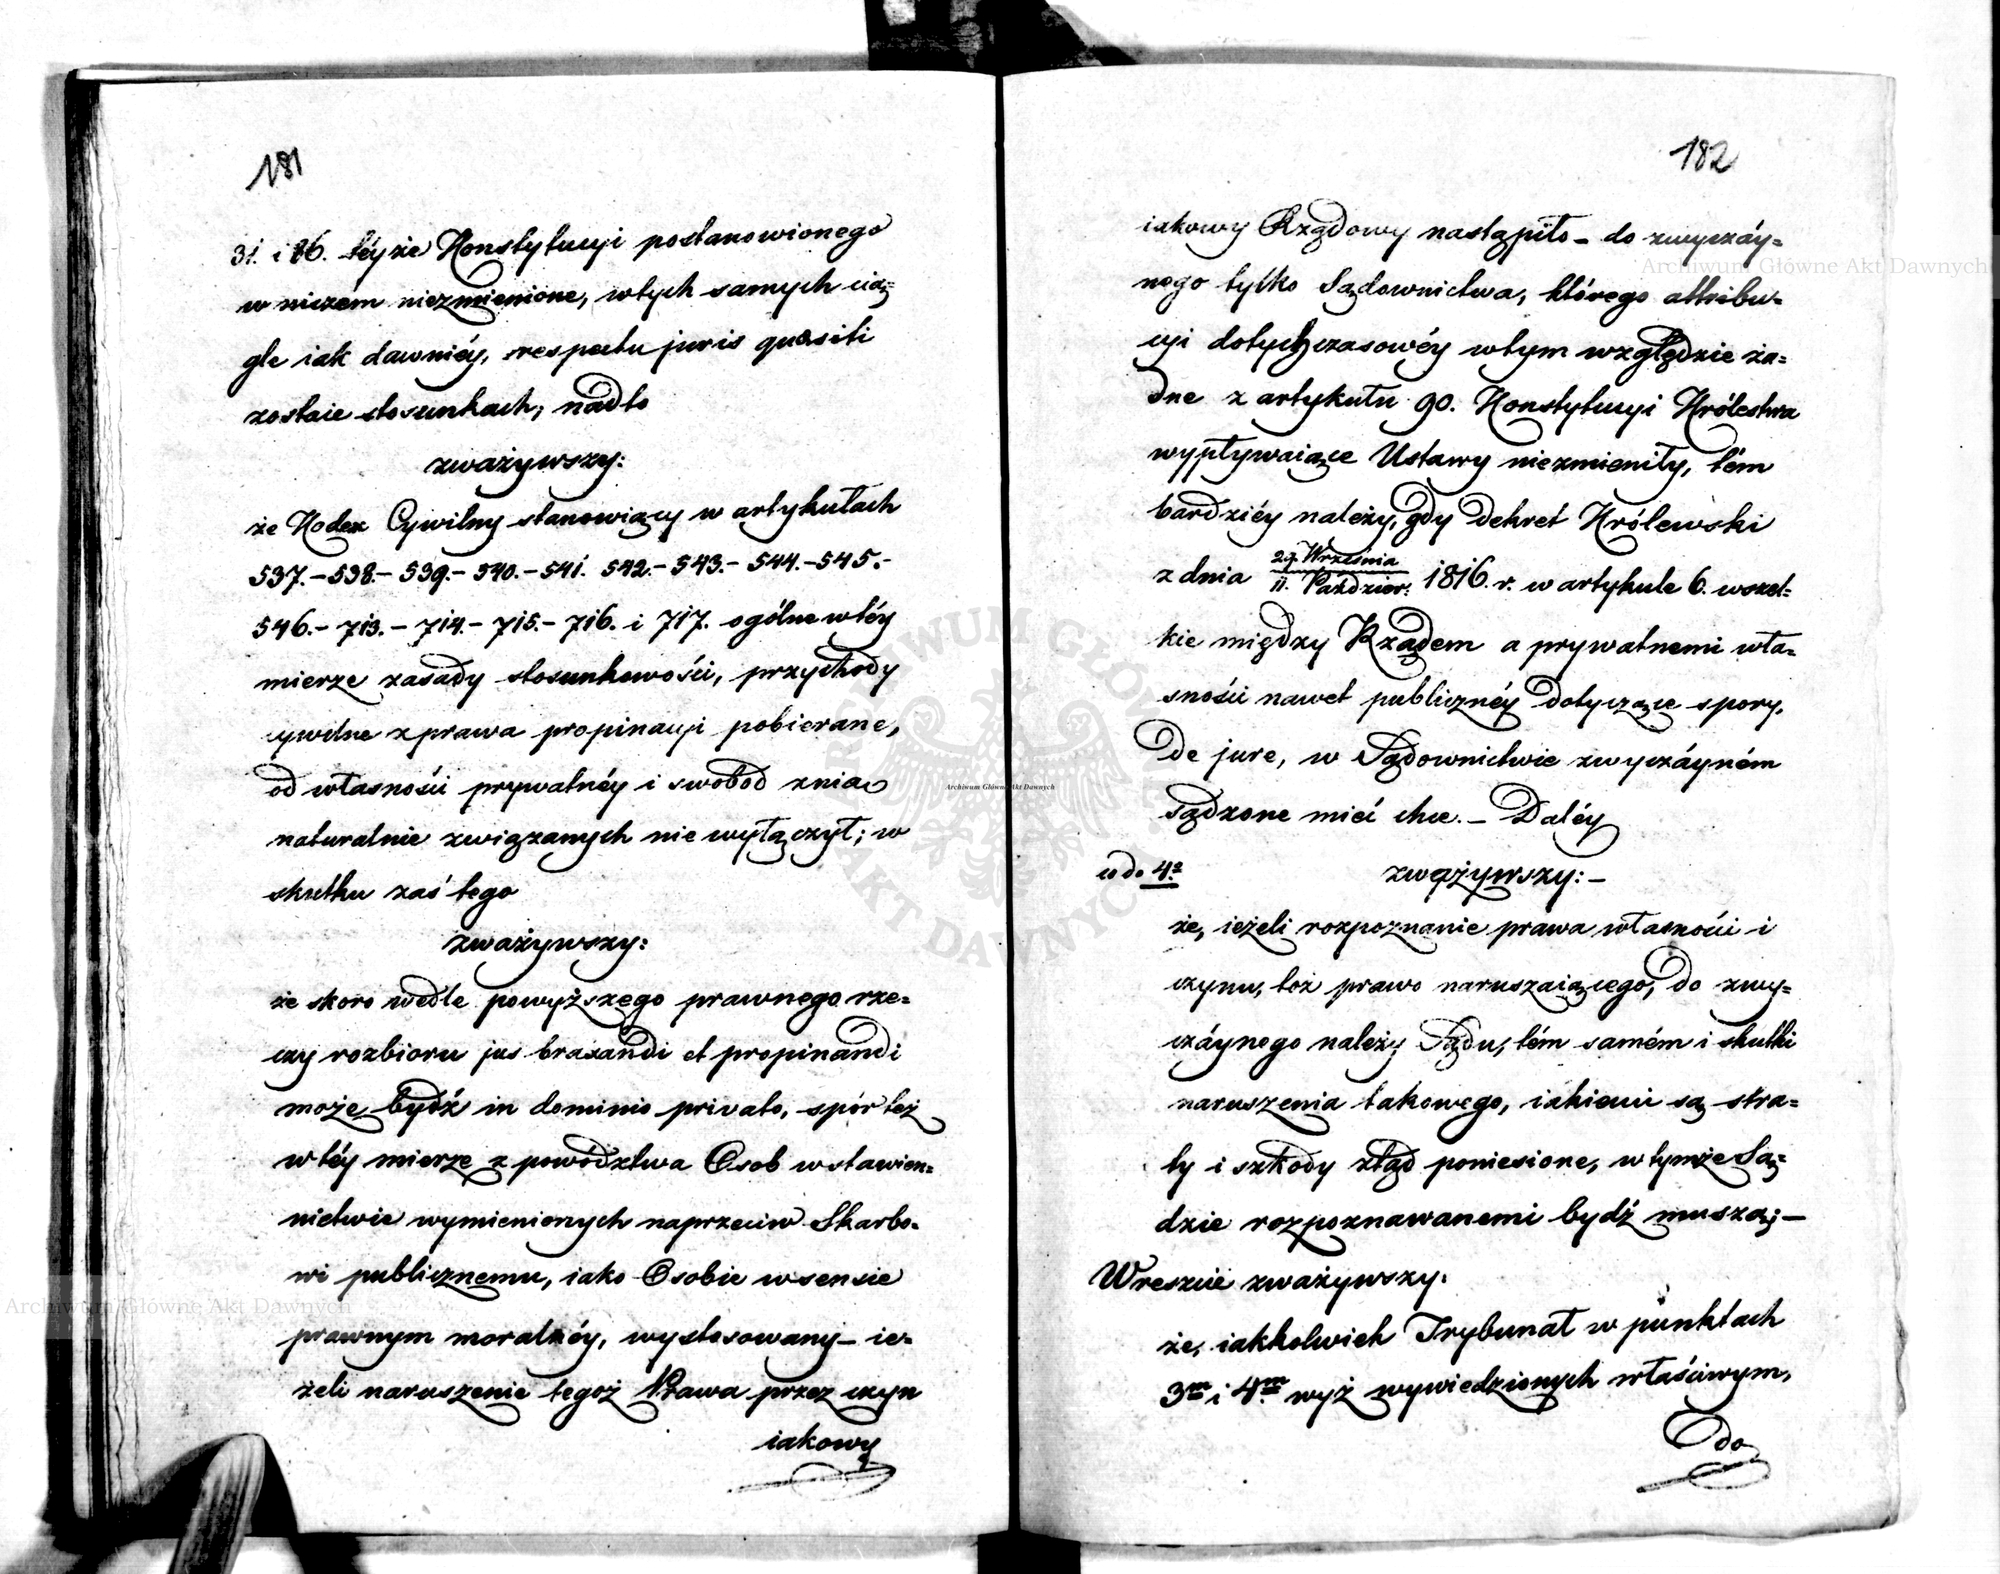 181
31. i 26. téyże Konstytucyi postanowionego
w niczem niezmienione, wtych samych cią=
gle iak dawniéy, respectu juris quaesiti
zostaie stosunkach, nadto
zważywszy:
że Kodex Cywilny stanowiący w artykułach
537.-538.- 539.- 540.- 541. 542.- 543.- 544.- 545.-
546.- 713.- 714.- 715.- 716. i 717. ogólne wtéy
mierze zasady stosunkowości, przychody
cywilne z prawa propinacyi pobierane,
od własności prywatnéy i swobod znia
naturalnie związanych nie wyłączył; w
skutku zaś tego
zważywszy:
że skoro wedle powyższego prawnego rze=
czy rozbioru jus braxandi et propinandi
może bydź in dominio privato, spór też
wtéy mierze z powództwa Osob wstawien=
nictwie wymienionych naprzeciw Skarbo=
wi publicznemu, iako Osobie wsensie
prawnym moralnéy, wystosowany – ie=
żeli naruszenie tegoż Prawa przez czyn
iakowy
182
iakowy Rządowy nastąpiło – do zwyczáy=
nego tylko Sądownictwa, którego attribu=
cyi dotychczasowéy wtym względzie ża=
dne z artykułu 90. Konstytucyi Królestwa
wypływaiące Ustawy niezmieniły, tém
bardziéy należy, gdy Dekret Królewski
z dnia 29. Września / 11. Paździer: 1816 r. w artykule 6. wszel=
kie między Rządem a prywatnemi wła=
sności nawet publicznéy dotyczące spory,
de jure, w Sądownictwie zwyczáyném
sądzone mieć chce. – Daléy
co do 4º
zważywszy: –
że, ieżeli rozpoznanie prawa własności i
czynu, toż prawo naruszaiącego, do zwy=
czáynego należy Sądu, tém samém i skutki
naruszenia takowego, iakiemi są stra=
ty i szkody ztąd poniesione, w tymże Są=
dzie rozpoznawanemi bydź muszą; –
Wreszcie zważywszy:
że, iakkolwiek Trybunał w punktach
3m i 4m wyż wywiedzionych właściwym,
do
Archiwum Główne Akt Dawnych
Archiwum Główne Akt Dawnych
Archiwum Główne Akt Dawnych
ARCHIWUM GŁÓWNE AKT DAWNYCH